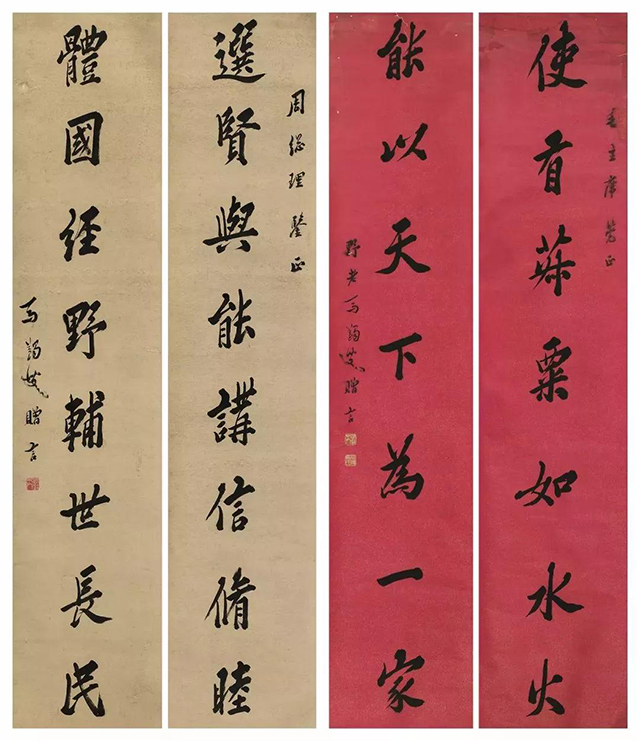 使有菽粟如水火
毛主席 正
能以天下為一家
野老馬蠲叟贈言
選賢與能講信脩睦
周總理鑒正
體國經野輔世長民
馬蠲叟贈言